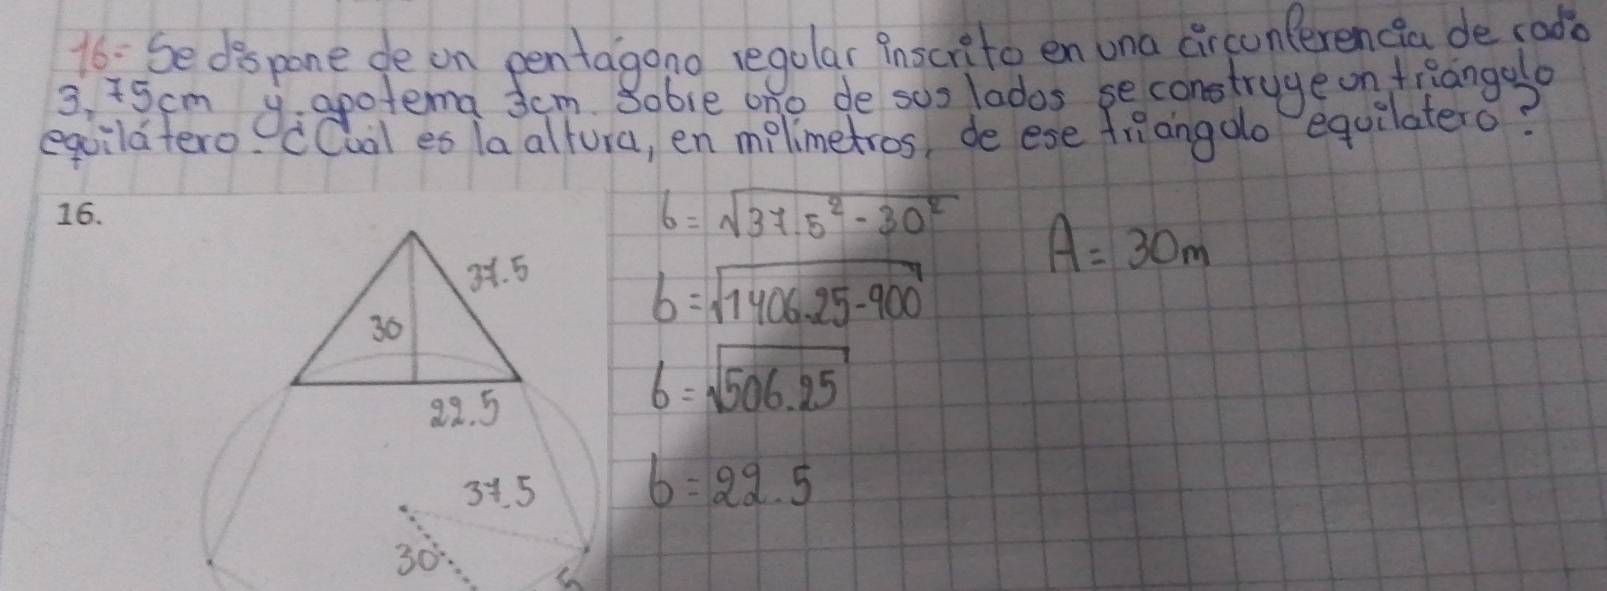 16= Se dispone de un pentágono regular inscrito en una circunferencia de radio
3,75cm y apotema 3cm. Sobre uno de sus lados se construye un triángulo
equilátero. ¿Cuál es la altura, en milimetros, de ese triangulo equilatero?
16.
b = √37.5² - 30²
A = 30m
37.5
b = √1406.25-900
30
b = √506.25
22.5
b = 22.5
37.5
30